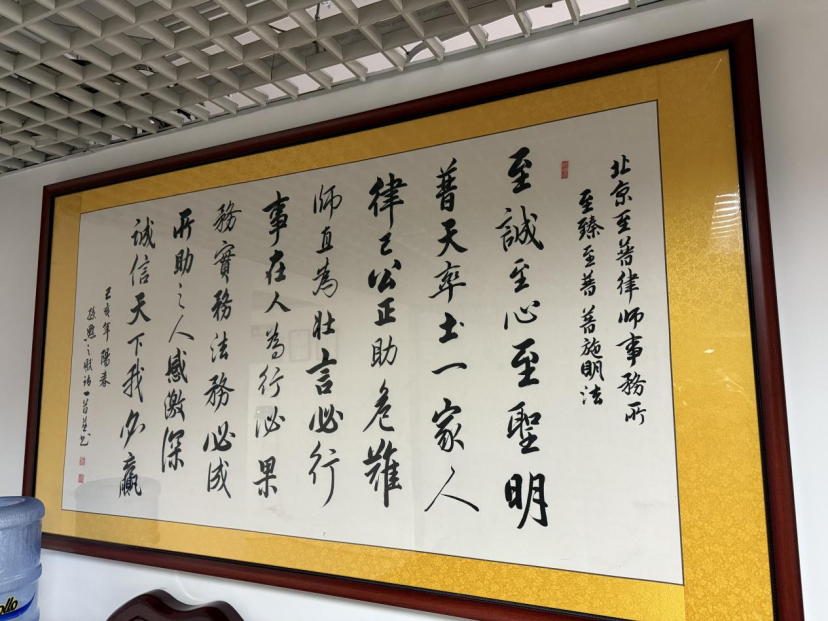 北京至普律師事務所
至臻至普 普施明法
至誠至心至聖明
普天率土一家人
律己公正助危難
師直為壯言必行
事在人為行必果
務實務法務必成
所助之人感激深
誠信天下我必贏
己亥年陽春